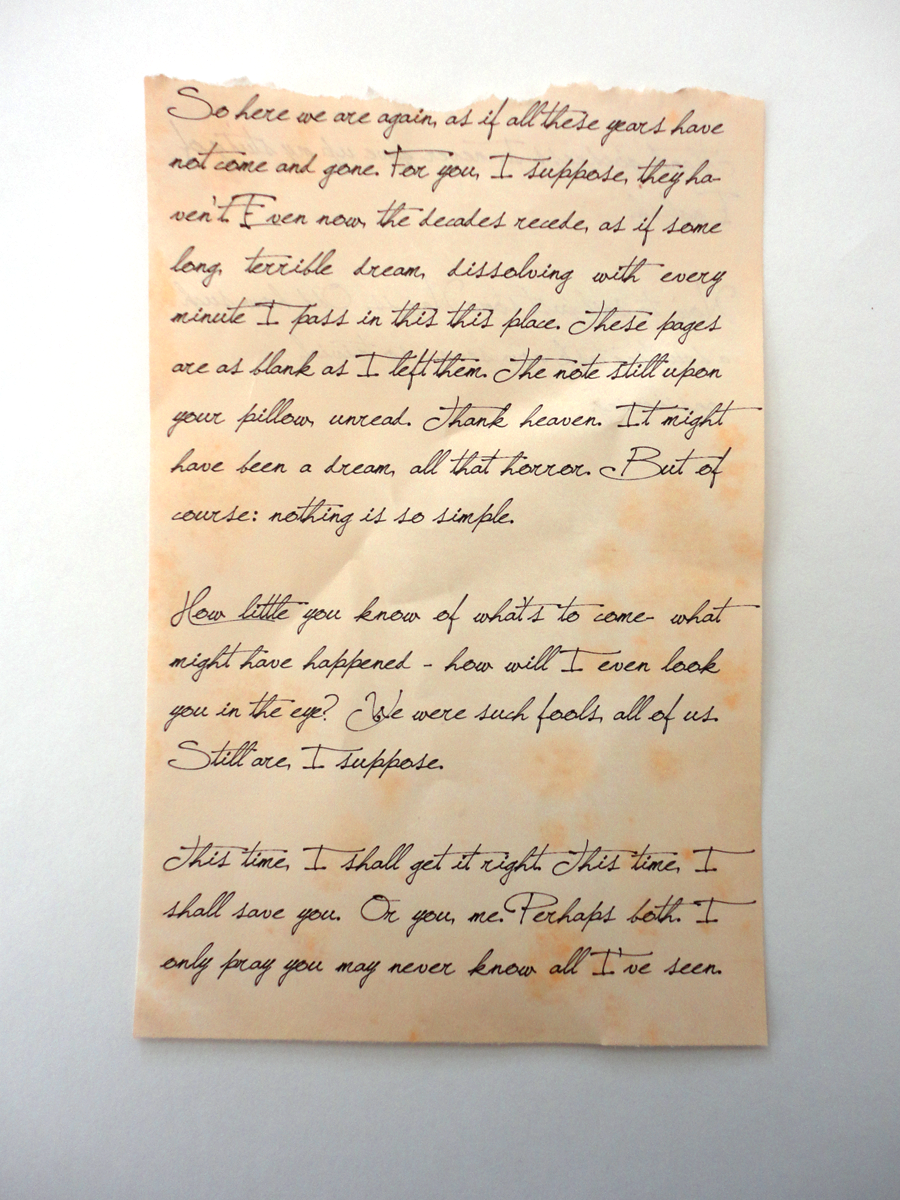 So here we are again, as if all these years have
not come and gone. For you, I suppose, they ha-
ven't. Even now, the decades recede, as if some
long, terrible dream, dissolving with every
minute I pass in this this place. These pages
are as blank as I left them. The note still upon
your pillow, unread. Thank heaven. It might
have been a dream, all that horror. But of
course: nothing is so simple.
How little you know of what's to come- what
might have happened - how will I even look
you in the eye? We were such fools, all of us.
Still are, I suppose.
This time, I shall get it right. This time, I
shall save you. Or you, me. Perhaps both. I
only pray you may never know all I've seen.